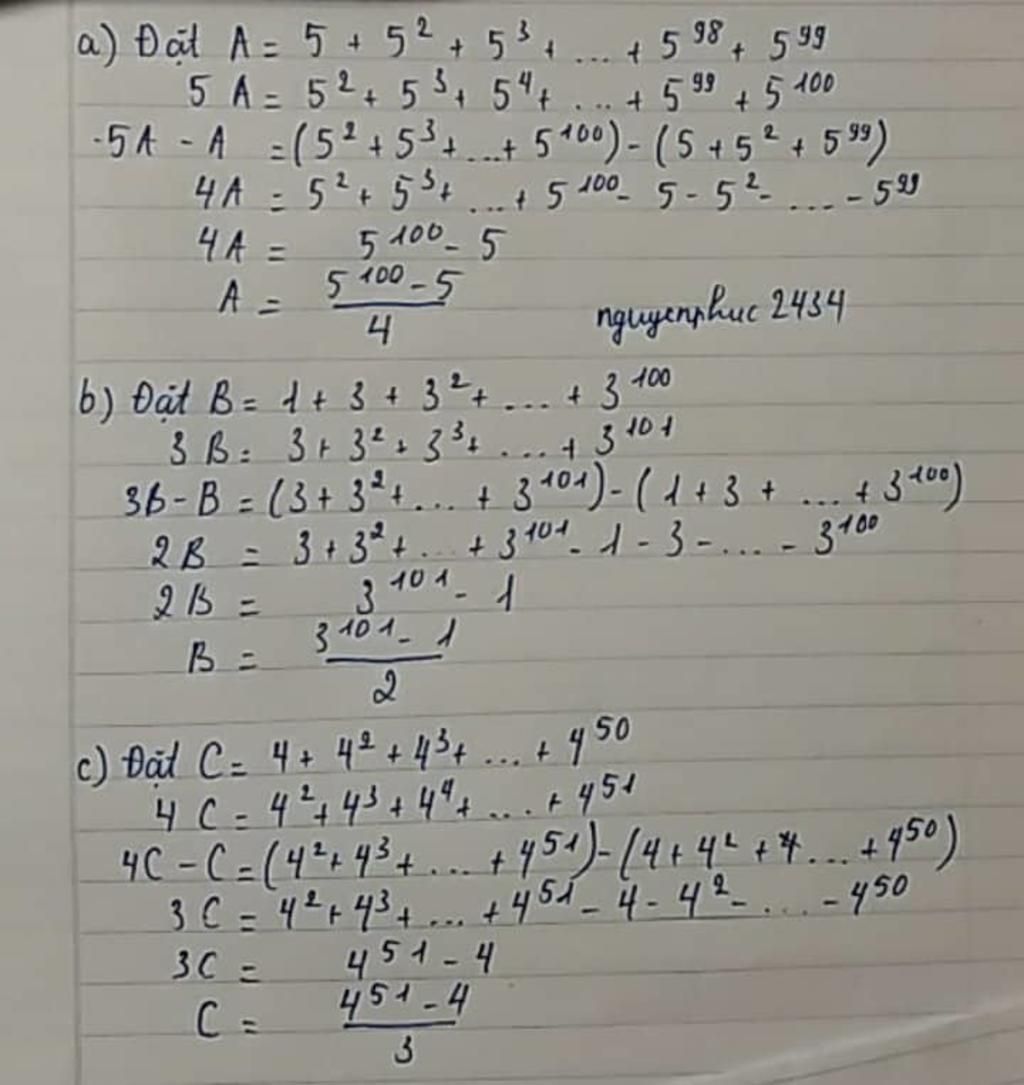 a) Đặt A = 5 + 5² + 5³ + ... + 5⁹⁸ + 5⁹⁹
5 A = 5² + 5³ + 5⁴ + ... + 5⁹⁹ + 5¹⁰⁰
5A - A = (5² + 5³ + ... + 5¹⁰⁰) - (5 + 5² + 5⁹⁹)
4A = 5² + 5³ + ... + 5¹⁰⁰ - 5 - 5² - ... - 5⁹⁹
4A = 5¹⁰⁰ - 5
A = 5¹⁰⁰ - 5
4
nguyenphuc 2434
b) Đặt B = 1 + 3 + 3² + ... + 3¹⁰⁰
3 B = 3 + 3² + 3³ + ... + 3¹⁰¹
3B - B = (3 + 3² + ... + 3¹⁰¹) - (1 + 3 + ... + 3¹⁰⁰)
2B = 3 + 3² + ... + 3¹⁰¹ - 1 - 3 - ... - 3¹⁰⁰
2B = 3¹⁰¹ - 1
B = 3¹⁰¹ - 1
2
c) Đặt C = 4 + 4² + 4³ + ... + 4⁵⁰
4 C = 4² + 4³ + 4⁴ + ... + 4⁵¹
4C - C = (4² + 4³ + ... + 4⁵¹) - (4 + 4² + 4 ... + 4⁵⁰)
3C = 4² + 4³ + ... + 4⁵¹ - 4 - 4² - ... - 4⁵⁰
3C = 4⁵¹ - 4
C = 4⁵¹ - 4
3